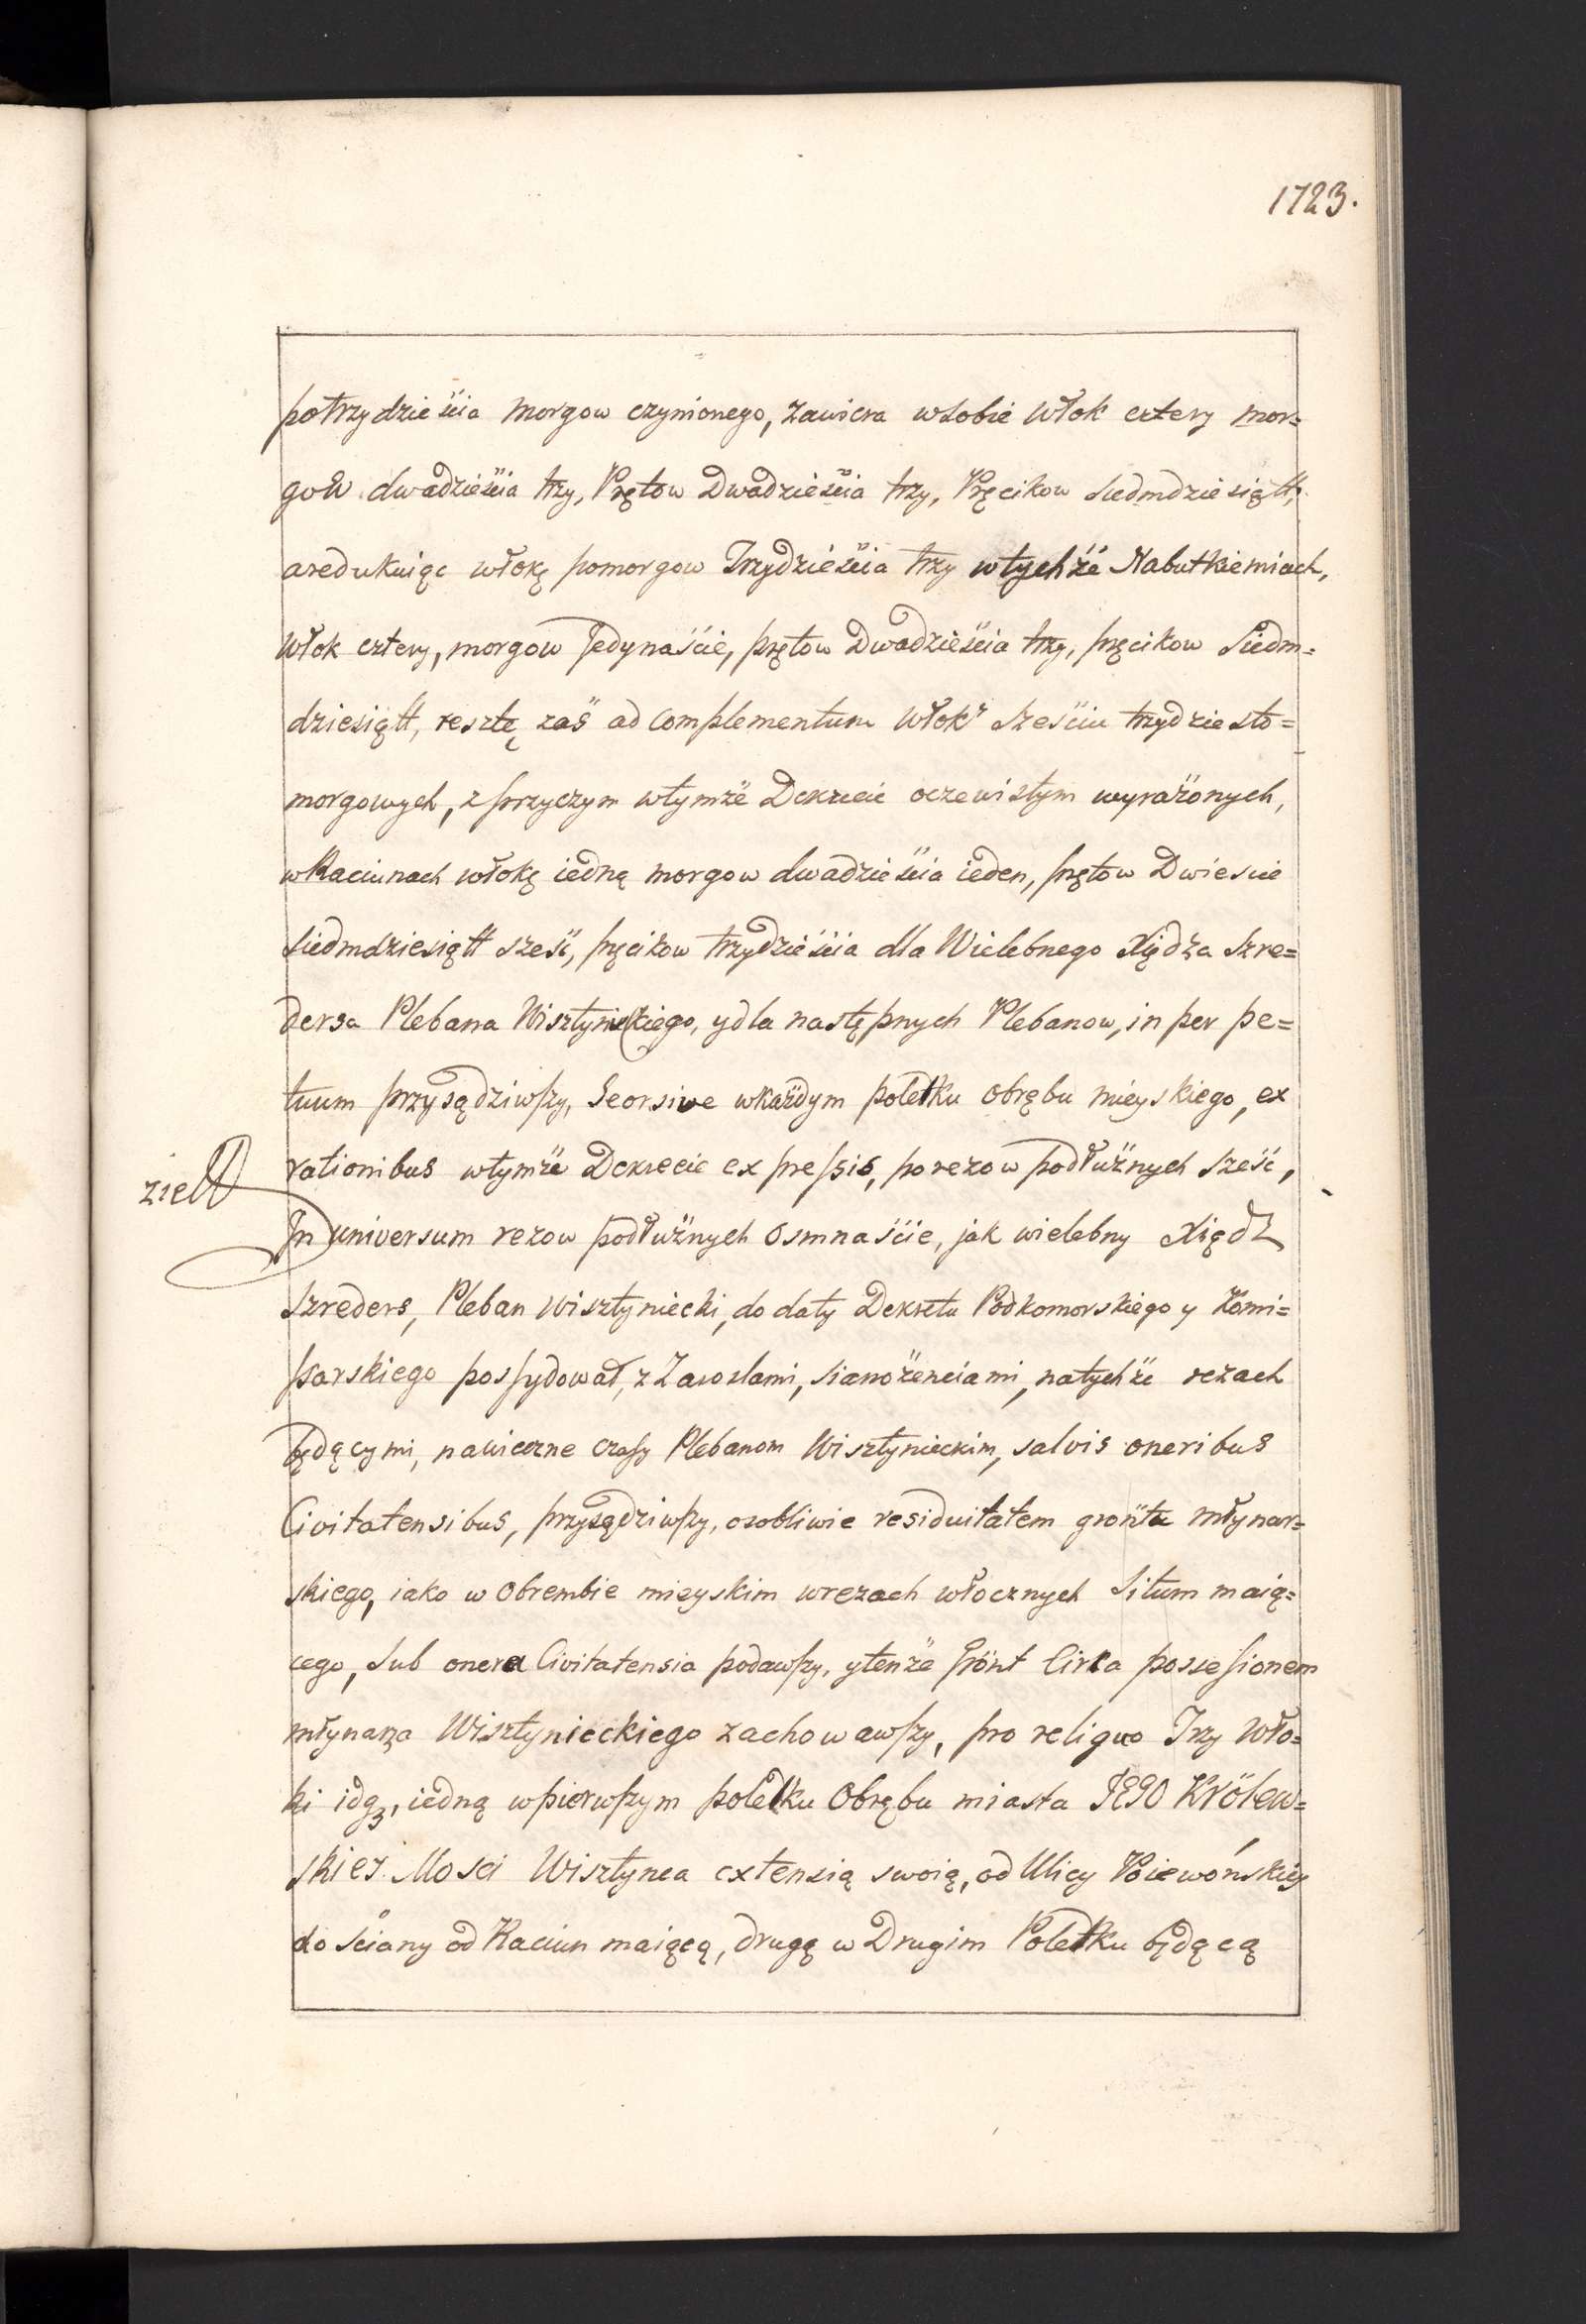 1723.
potrzydzieścia morgow czynionego, zawiera wsobie włok cztery mor=
gow dwadzieścia trzy, Prętow Dwadzieścia trzy, Pręcikow siedmdziesiątt,
aredukuiąc włokę pomorgow Trzydzieścia trzy wtychże Nabutkiemiach,
Włok cztery, morgow Jedynaście, prętow Dwadzieścia trzy, pręcikow Siedm=
dziesiątt, resztę zaś ad complementum włok sześciu trzydziesto=
morgowych, z przyczym wtymże Dekrecie oczewistym wyrażonych,
wKaciunach włokę iedną morgow dwadzieścia ieden, prętow Dwiescie
siedmdziesiątt sześć, pręcikow trzydzieścia dla Wielebnego Xiędza Szre=
dersa Plebana Wisztynieckiego, ydla następnych Plebanow, in per pe=
tuum przysądziwszy, Seorsive wkażdym poletku obrębu mieyskiego, ex
rationibus wtymże Dekrecie expressis, porezow podłużnych sześć,
zie
In universum rezow podłużnych osmnaście, jak wielebny Xiądz
Szreders, Pleban wisztyniecki, do daty Dekretu Podkomorskiego y Komi=
ssarskiego possydował, z Zaroslami, sianożenciami, natychże rezach
będącymi, nawieczne czasy Plebanom Wisztynieckim, salvis oneribus
Civitatensibus, przysądziwszy, osobliwie residuitatem grontu młynar=
skiego, iako w obrembie mieyskim wrezach włocznych situm maią=
cego, sub onera Civitatensia podawszy, ytenże Gront Circa possesionem
młynarza Wisztynieckiego zachowawszy, pro reliquo Trzy Wło=
ki idq3, iedną wpierwszym poletku Obrębu miasta JEGO Królew=
skiej Mosci Wisztynca extensią swoią, od Ulicy
do sciany od Kaciun maiącą, drugą w Drugim Poletku będącą